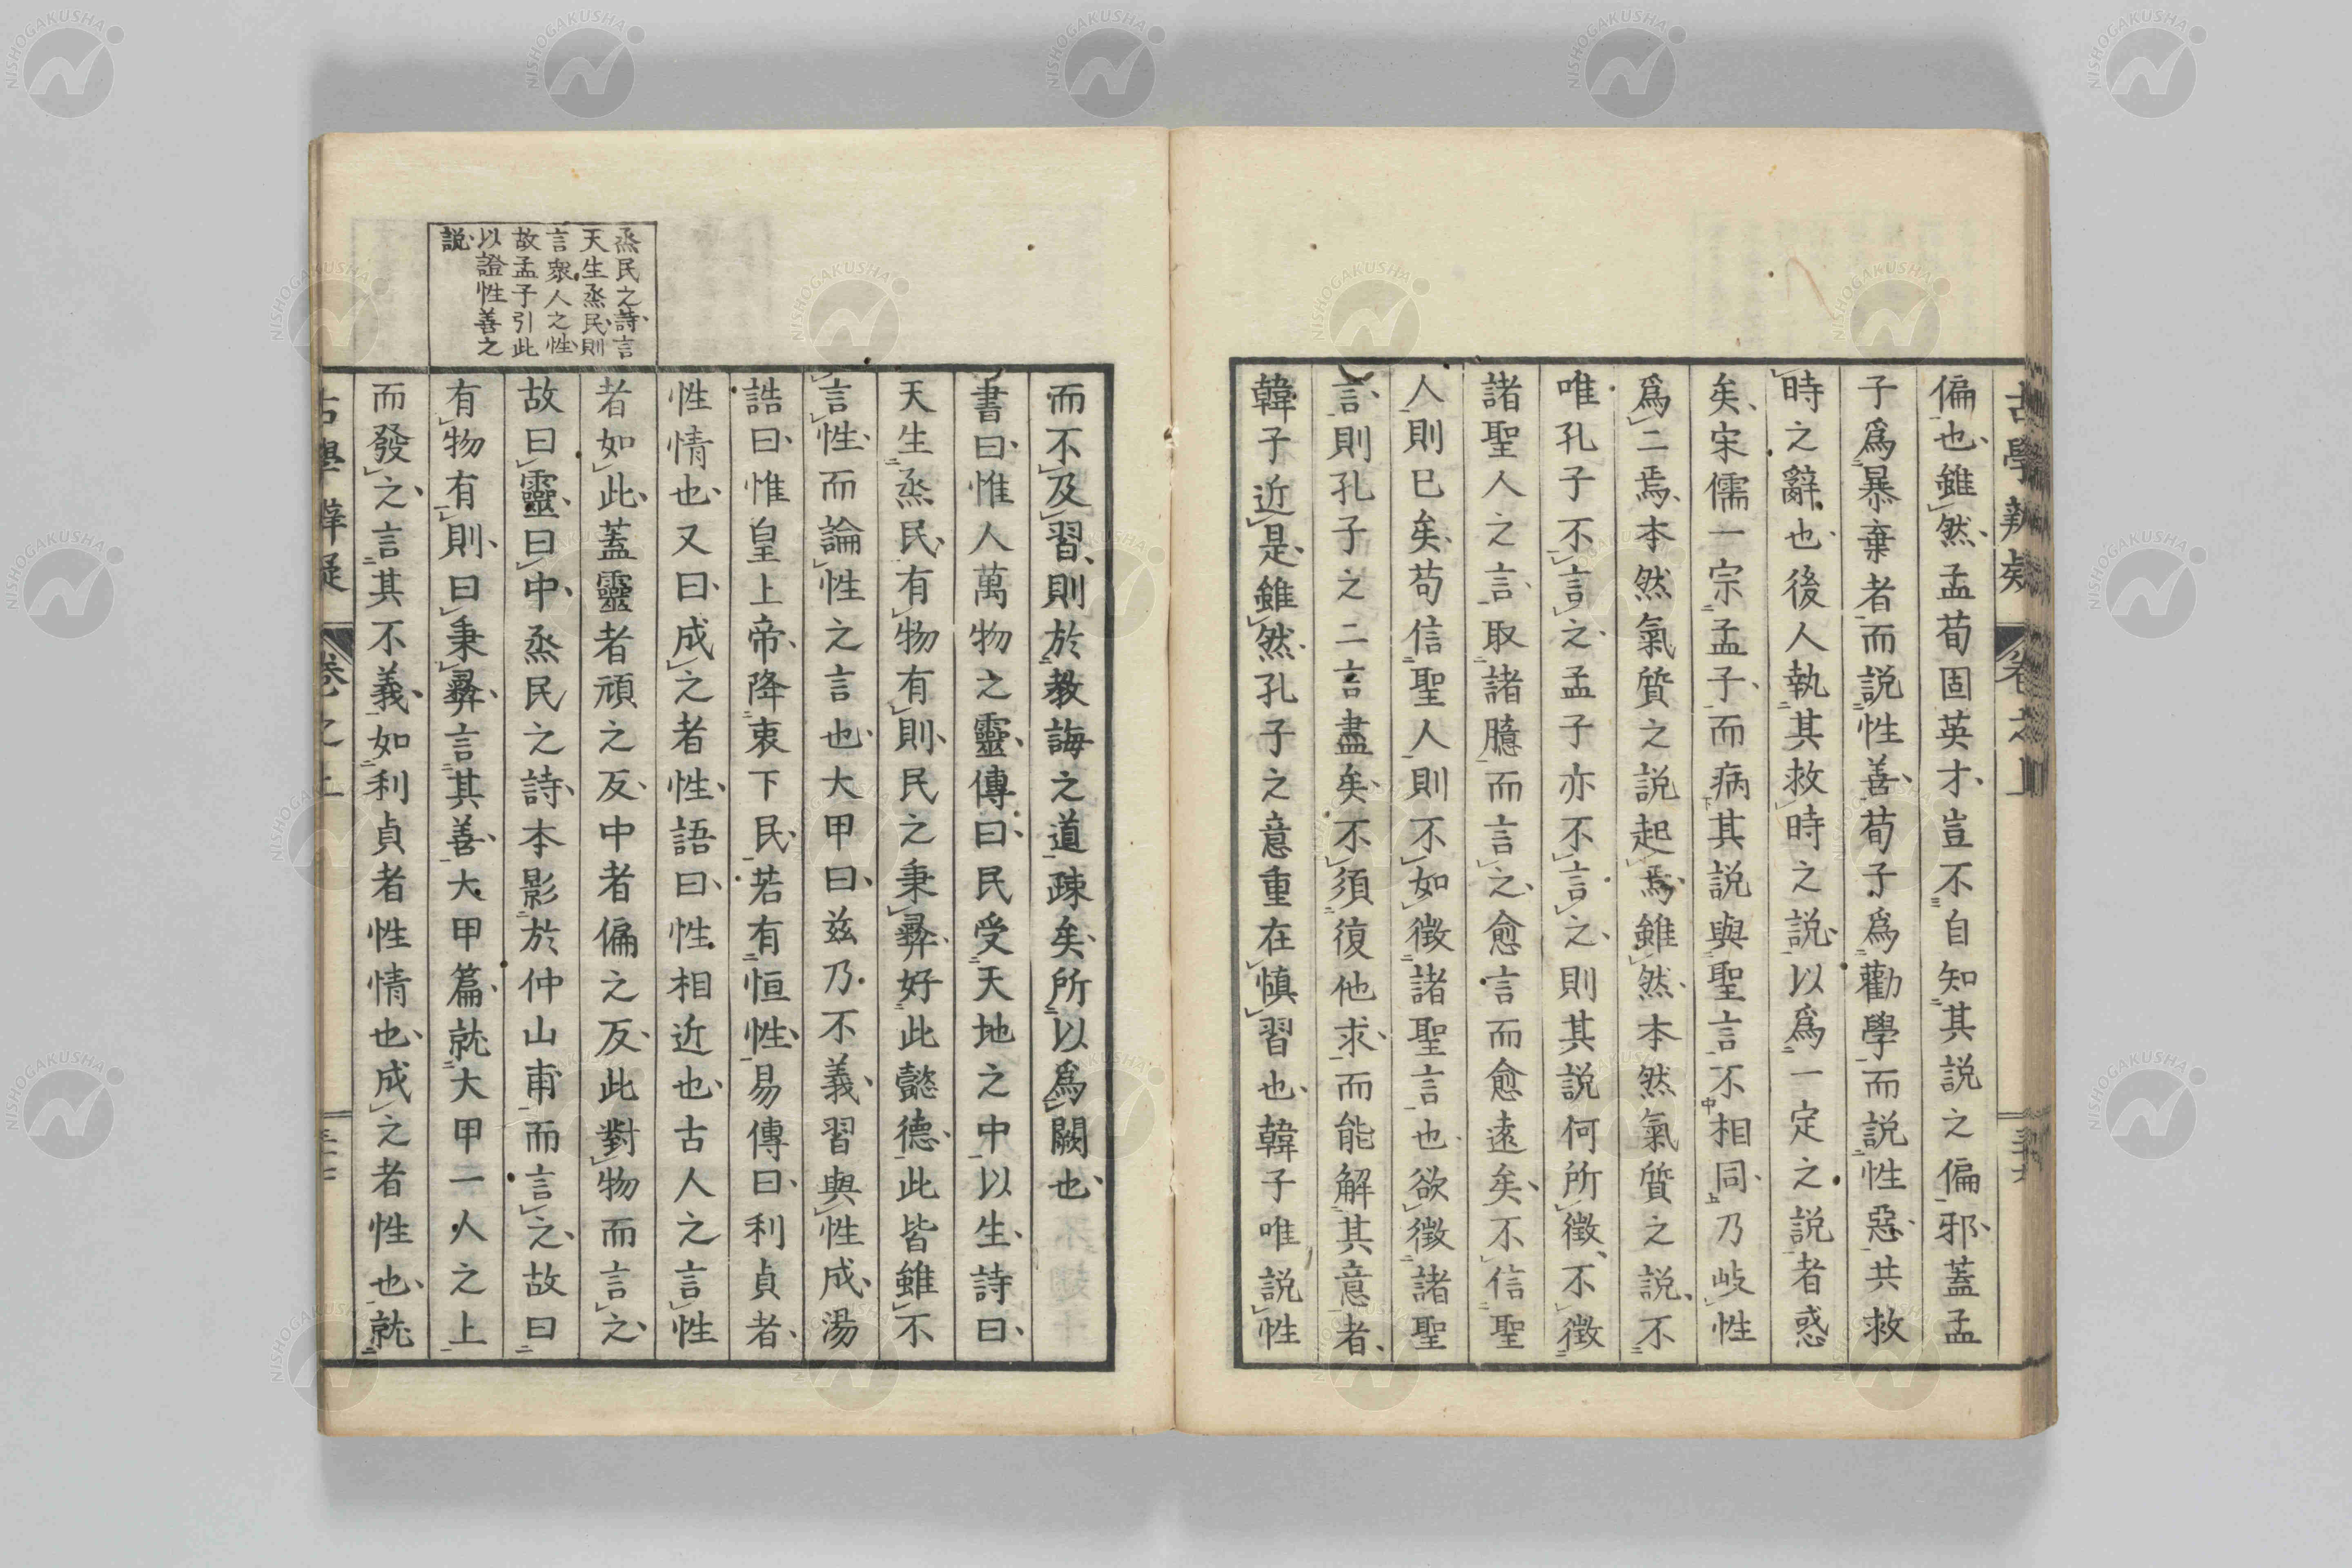 偏也、雖然、孟荀固英才、豈不自知其説之偏邪、蓋孟
子爲暴棄者而説性善、荀子爲勸學而説性惡、共救
時之辭也、後人執其救時之説、以爲一定之説者惑
矣、宋儒一宗孟子、而病其説與聖言不相同、乃岐性
爲二焉、本然氣質之説起焉、雖然、本然氣質之説、不
唯孔子不言之、孟子亦不言之、則其説何所徵、不徵
諸聖人之言、取諸臆而言之、愈言而愈遠矣、不信聖
人則已矣、苟信聖人、則不如徵諸聖言也、欲徵諸聖
言、則孔子之二言盡矣、不須復他求、而能解其意者、
韓子近是、雖然、孔子之意重在慎習也、韓子唯説性
而不及習、則於教誨之道疎矣、所以爲闕也、
書曰、惟人萬物之靈、傳曰、民受天地之中以生、詩曰、
天生烝民、有物有則、民之秉彝、好此懿德、此皆雖不
言性、而論性之言也、大甲曰、兹乃不義、習與性成、湯
誥曰、惟皇上帝、降衷下民、若有恒性、易傳曰、利貞者、
性情也、又曰、成之者性、語曰、性相近也、古人之言性
者如此、蓋靈者頑之反、中者偏之反、此對物而言之、
故曰靈、曰中、烝民之詩、本影於仲山甫而言之、故曰
有物有則、曰秉彝、言其善、大甲篇、就大甲一人之上
而發之、言其不義、如利貞者性情也、成之者性也、就
烝民之詩、言
天生烝民、則
言衆人之性、
故孟子引此
以證性善之
説、
古學辨疑 卷之上